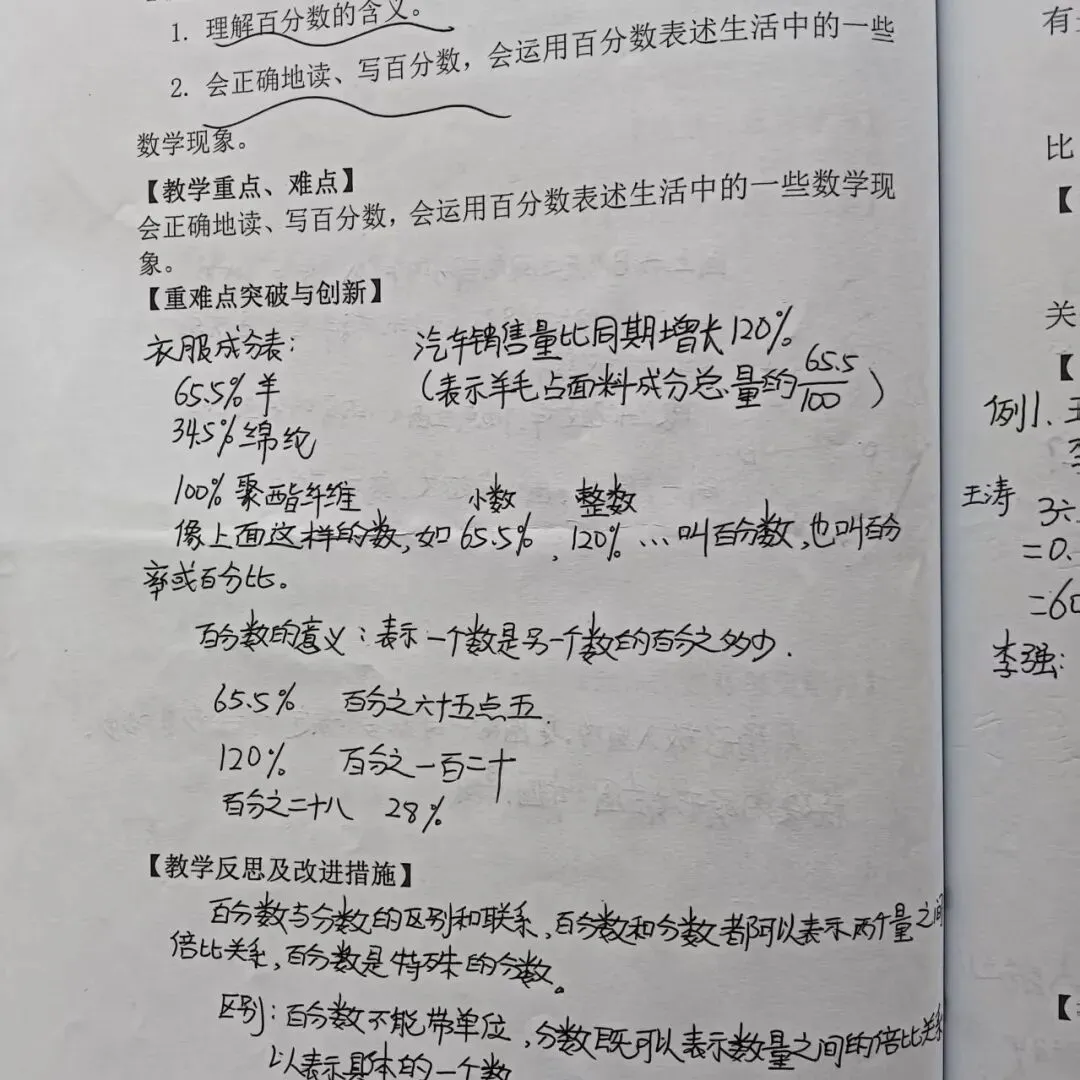 1. 理解百分数的含义。
2. 会正确地读、写百分数，会运用百分数表述生活中的一些
数学现象。
【教学重点、难点】
会正确地读、写百分数，会运用百分数表述生活中的一些数学现
象。
【重难点突破与创新】
衣服成分表：
65.5% 羊
34.5% 绵纶
100% 聚酯纤维
汽车销售量比同期增长120%
（表示羊毛占面料成分总量的65.5/100）
小数 整数
像上面这样的数，如65.5%，120% … 叫百分数，也叫百分
率或百分比。
百分数的意义：表示一个数是另一个数的百分之多少.
65.5% 百分之六十五点五.
120% 百分之一百二十
百分之二十八 28%
【教学反思及改进措施】
百分数与分数的区别和联系，百分数和分数都可以表示两个量之间
倍比关系，百分数是特殊的分数。
区别：百分数不能带单位，分数既可以表示数量之间的倍比关系
以表示具体的一个数
有
比
【
关
【
例1、王
李
王涛 3六
=0.
=60
李强：
【